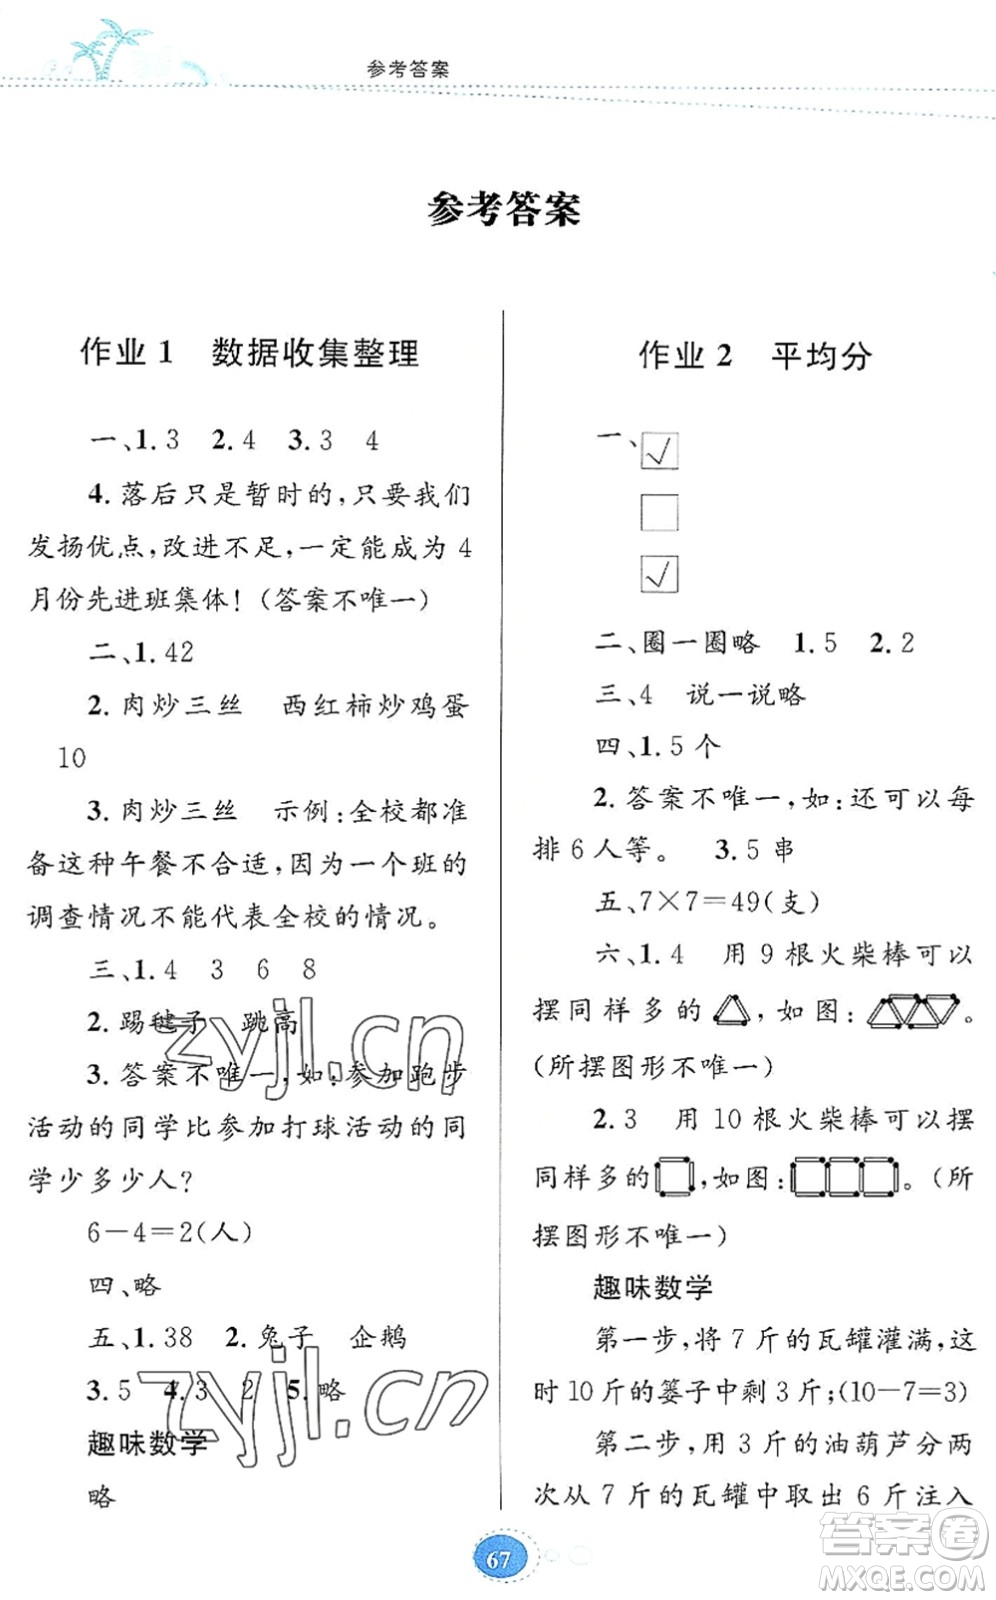 参考答案
参考答案
作业 1 数据收集整理
一、1.3 2.4 3.3 4
4.落后只是暂时的,只要我们
发扬优点,改进不足,一定能成为 4
月份先进班集体!(答案不唯一)
二、1.42
2.肉炒三丝 西红柿炒鸡蛋
10
3.肉炒三丝 示例:全校都准
备这种午餐不合适,因为一个班的
调查情况不能代表全校的情况。
三、1.4 3 6 8
2.踢毽子 跳高
3.答案不唯一,如:参加跑步
活动的同学比参加打球活动的同
学少多少人?
6-4=2(人)
四、略
五、1.38 2.兔子 企鹅
3.5 4.3 2 5.略
趣味数学
略
作业 2 平均分
一、☑
☐
☑
二、圈一圈略 1.5 2.2
三、4 说一说略
四、1.5 个
2.答案不唯一,如:还可以每
排 6 人等。 3.5 串
五、7×7=49(支)
六、1.4 用 9 根火柴棒可以
摆同样多的 ,如图: 。
(所摆图形不唯一)
2.3 用 10 根火柴棒可以摆
同样多的 ,如图: 。(所
摆图形不唯一)
趣味数学
第一步,将 7 斤的瓦罐灌满,这
时 10 斤的篓子中剩 3 斤;(10-7=3)
第二步,用 3 斤的油葫芦分两
次从 7 斤的瓦罐中取出 6 斤注入
67
zyjl.cn
zyjl.cn
答案圈
MXQE.COM